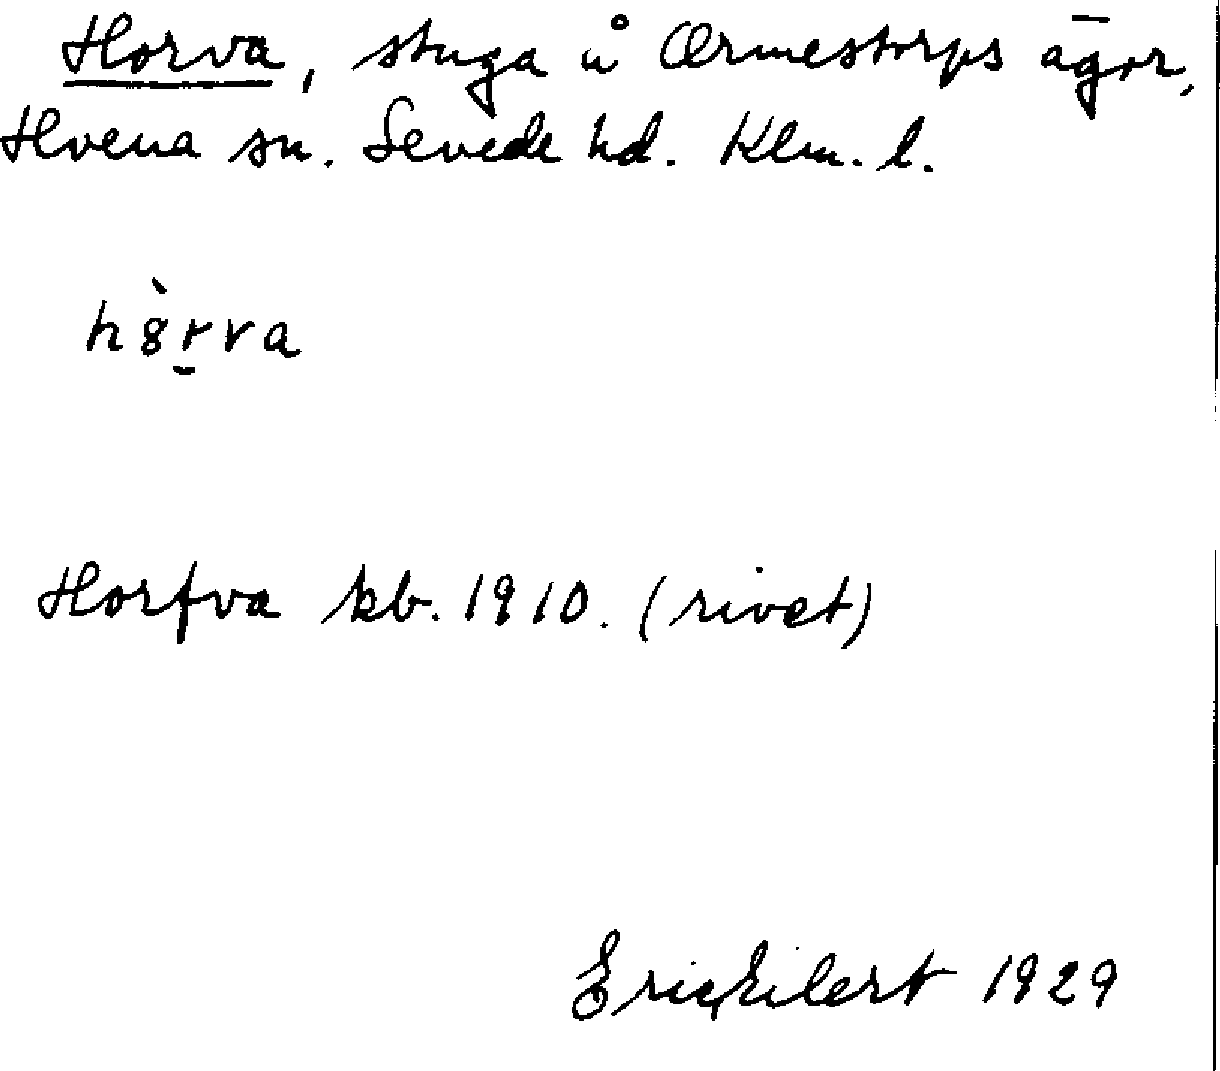 Horva, stuga å Ormestorps ägor,
Hvena sn. Sevede hd. Klm. l.
hòrva
Horfva kb. 1910. (rivet)
Eric Eilert 1929